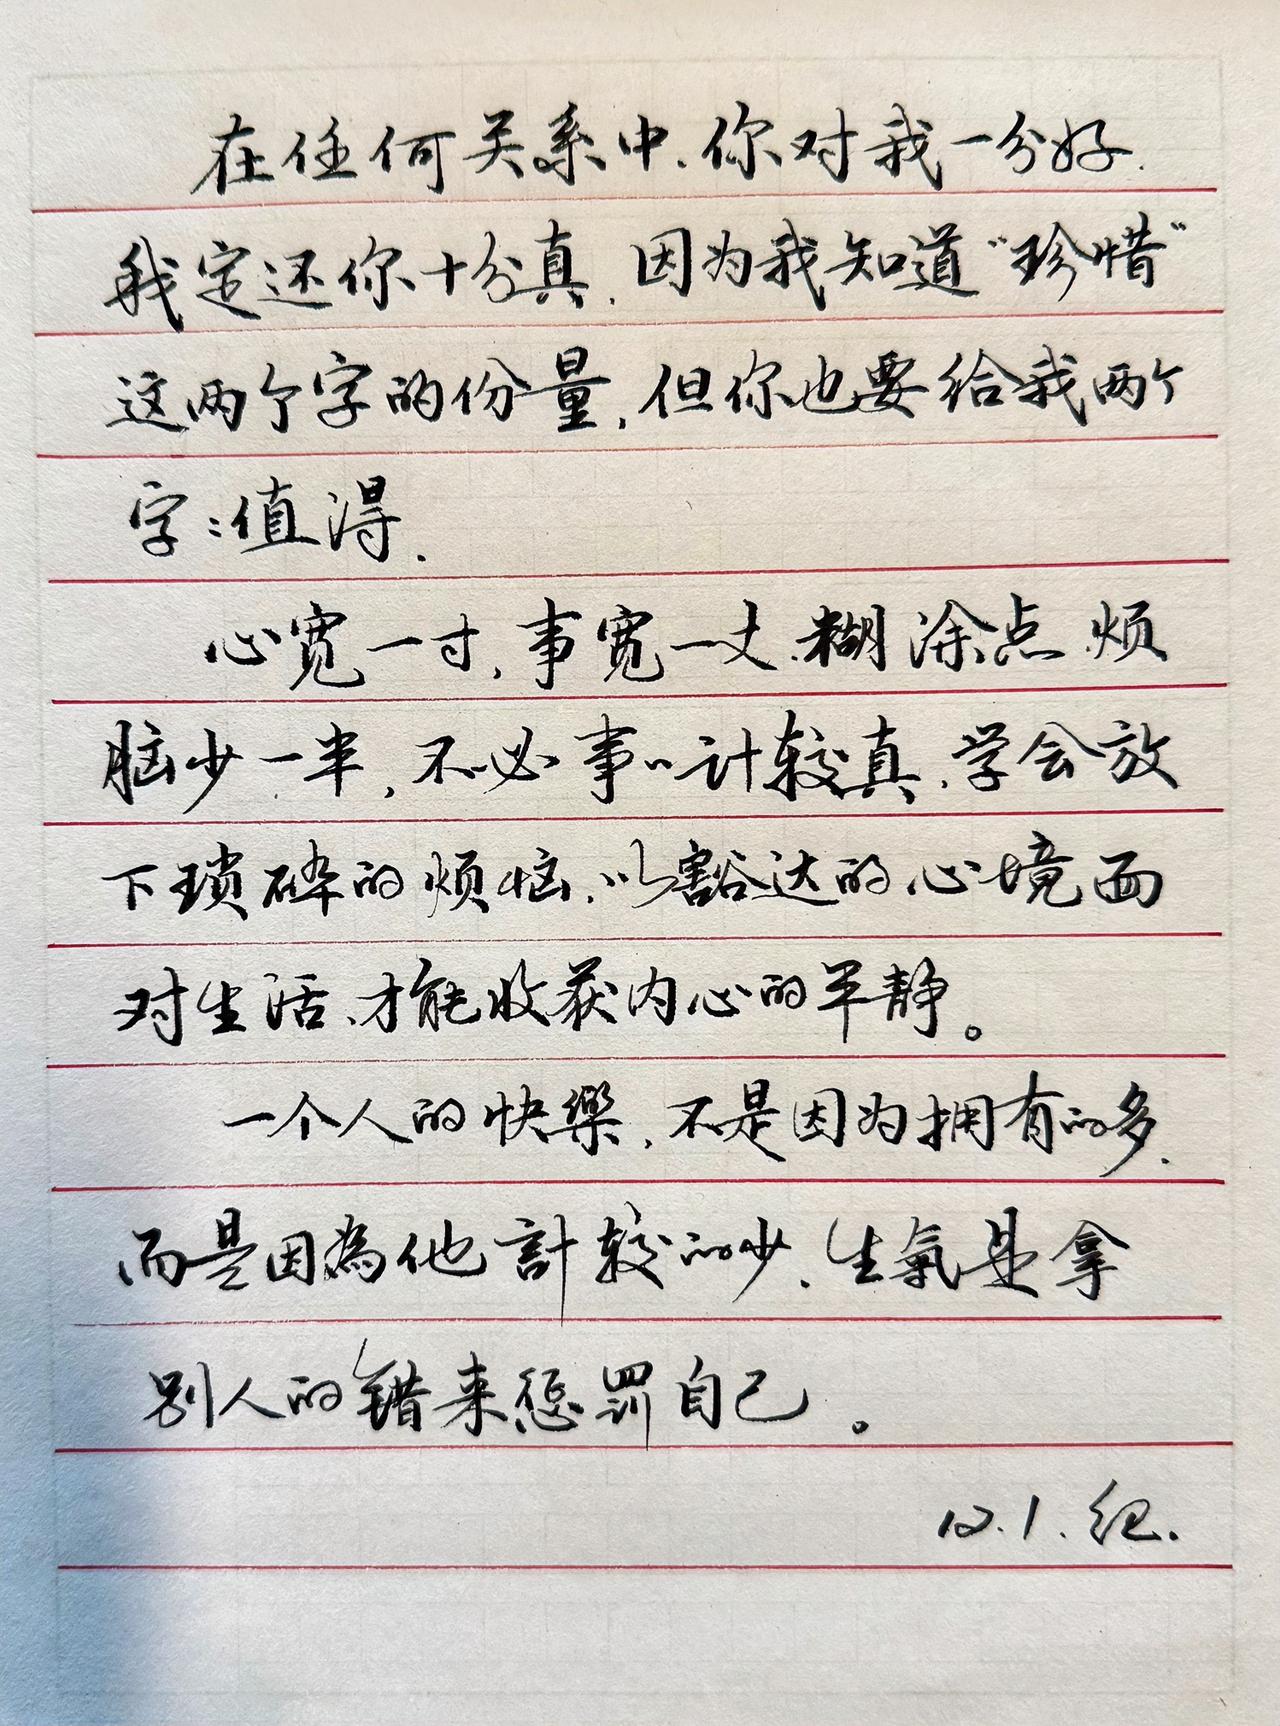 在任何关系中.你对我一分好.
我定还你十分真.因为我知道"珍惜"
这两个字的份量,但你也要给我两个
字:值得.
心宽一寸,事宽一丈.糊涂点.烦
脑少一半,不必事〃计较真.学会放
下琐碎的烦恼.以豁达的心境面
对生活、才能收获内心的平静。
一个人的快樂.不是因为拥有的多.
而是因為他計较的少.生氣是拿
别人的错来惩罚自己。
12.1.纪.